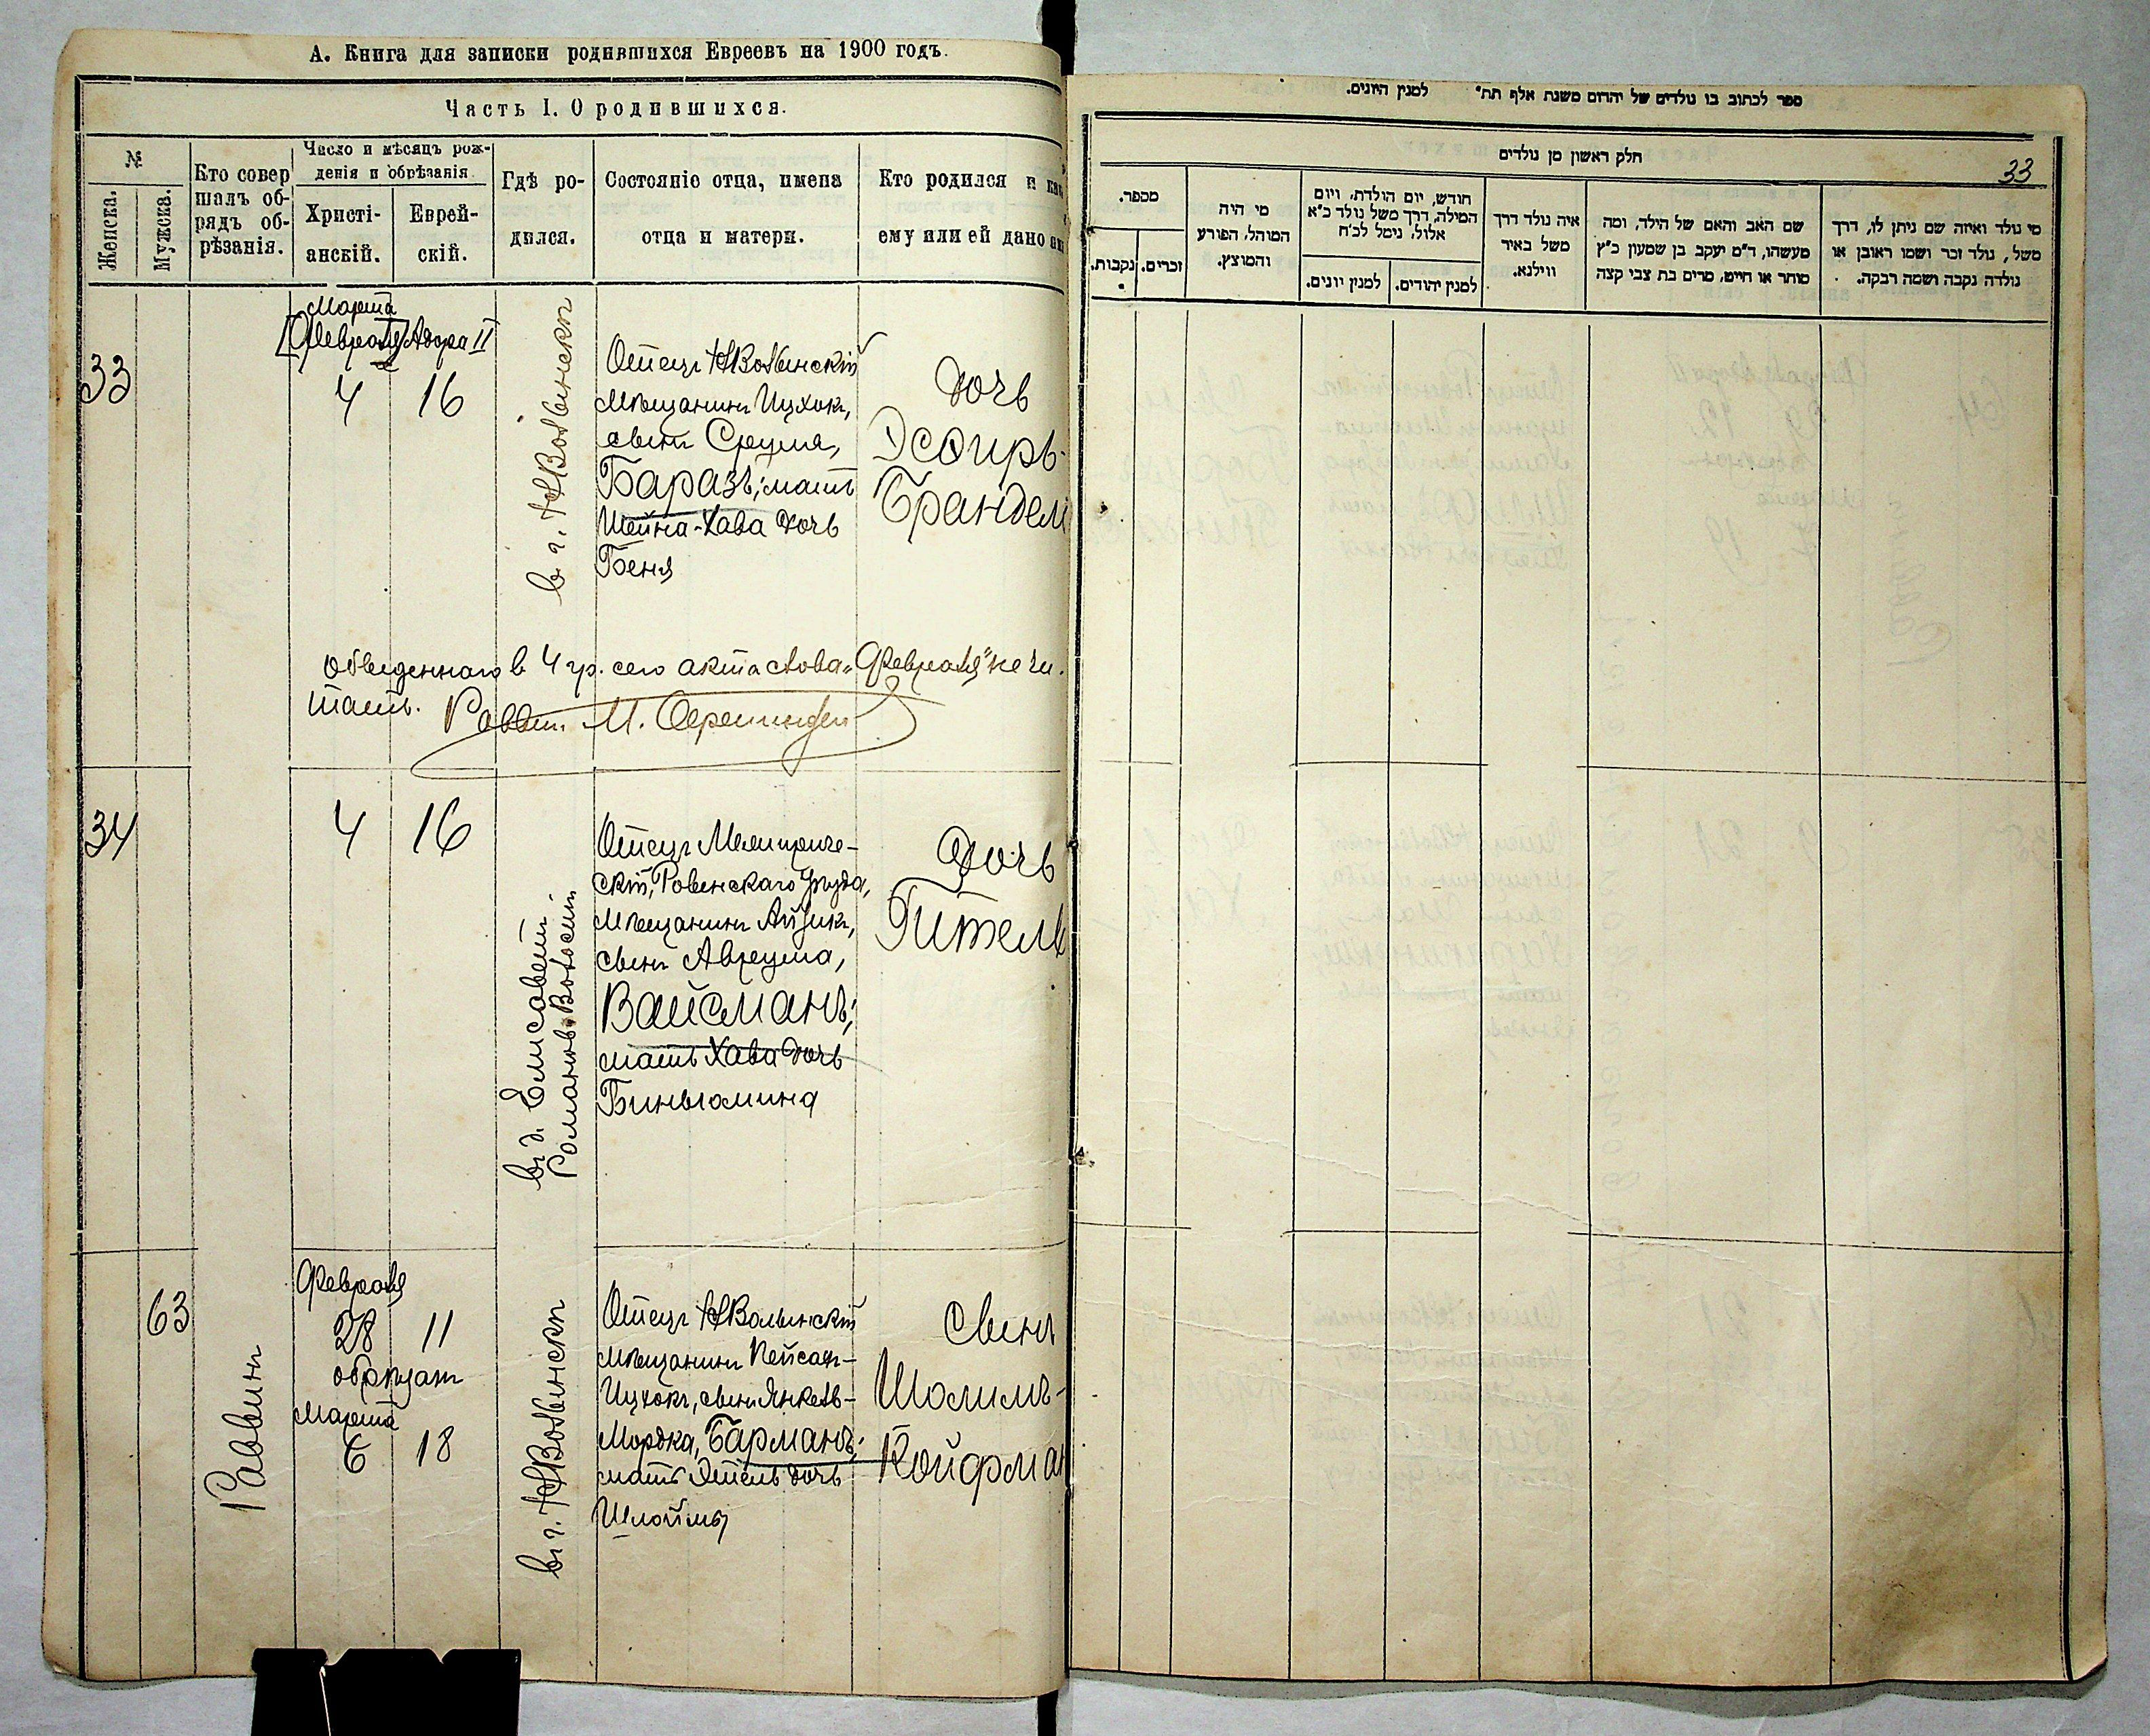 А. Книга для записки родившихся Евреевъ на 1900 годъ.
Часть I. О родившихся.
№
Женска.
Мужска.
Кто совер
шалъ об-
рядъ об-
рѣзанія.
Число и мѣсяцъ рож-
денія и обрѣзанія.
Христі-
анскій.
Еврей-
скій.
Гдѣ ро-
дился.
Состояніе отца, имена
отца и матери.
Кто родился и как
ему или ей дано
33
Марта
[Февраля] Адара II
4 16
в г. НВолынскъ
Отецъ НВолынскій
мѣщанинъ Ицхокъ,
сынъ Сруля,
Баразъ; мать
Шейна-Хава дочь
Беня
Дочь
Эсѳирь-
Брандель
Обведеннаго в 4 гр. сего акта слова "Февраля" не чи-
тать. Раввин М.
34
4 16
в д. Елисовет
Романов. Волости
Отецъ Межириче-
скій, Ровенскаго уѣзда,
мѣщанинъ Айзикъ,
сынъ Аврума,
Вайсманъ;
мать Хава дочь
Биньюмина
Дочь
Гитель
63
Раввинъ
Февраля
28 11
обрѣзан
Марта
6 18
в г. НВолынскъ
Отецъ НВолынскій
мѣщанинъ Пейсах-
Ицхокъ, сынъ Янкель-
Мордка, Барманъ;
мать Этель дочь
Шлоймы
Сынъ
Шолимъ-
Койфман
ספר לכתוב בו נולדים של יהודים משנת אלף תת״ למנין היונים.
חלק ראשון מן נולדים
33
מי נולד ואיזה שם ניתן לו, דרך
משל, נולד זכר ושמו ראובן או
נולדה נקבה ושמה רבקה.
שם האב והאם של הילד, ומה
מעשהו, ד״מ יעקב בן שמעון כ״ץ
סוחר או חייט, מרים בת צבי קצה
איה נולד דרך
משל באיר
ווילנא.
חודש, יום הולדת, ויום
המילה, דרך משל נולד כ״א
אלול, נימל לכ״ח
למנין יהודים.
למנין יונים.
מי היה
המוהל, הפורע
והמוצץ.
מספר.
זכרים.
נקבות.